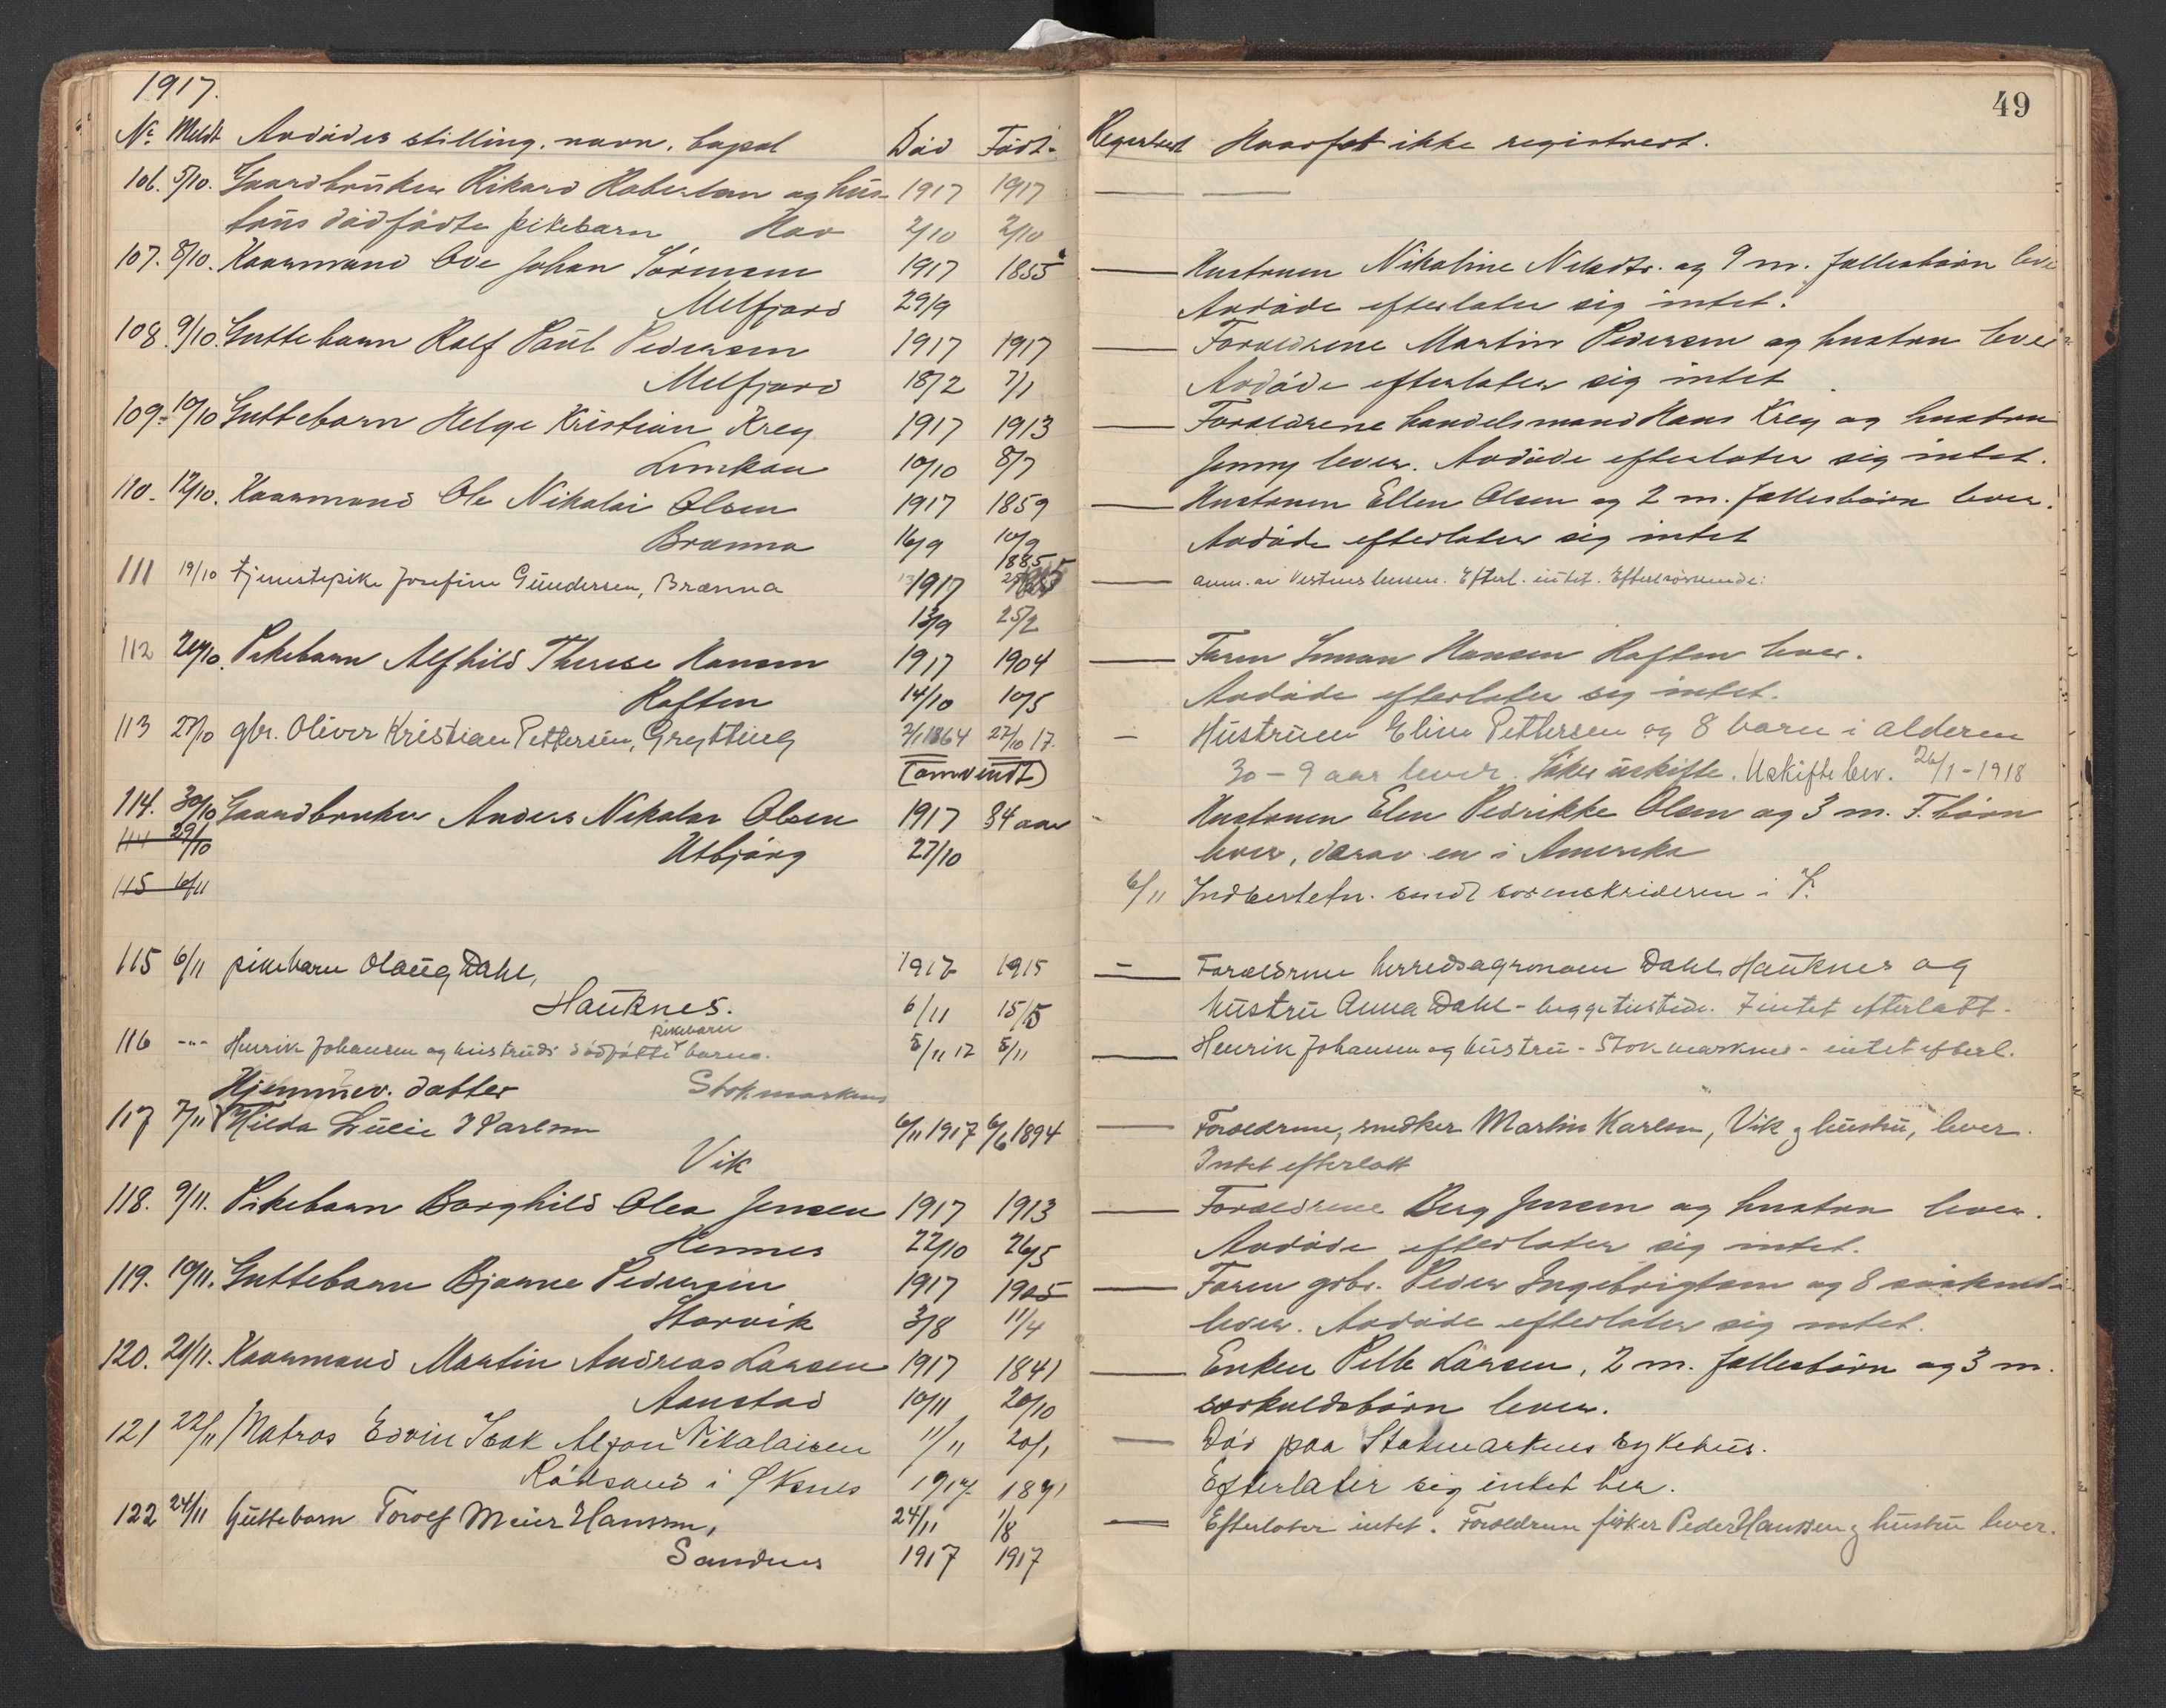 1917.
No Meldt Avdödes stilling. navn. bopæl Död Født.
106. 5/10. Gaardbruker Rikard Robertsen og hus- 1917 1917
trus dödfödte pikebarn Hov 2/10 2/10
107. 8/10. Kaarmand Ole Johan Sörensen 1917 1855
Melfjord 29/9
108. 9/10. Guttebarn Rolf Paul Pedersen 1917 1917
Melfjord 18/2 7/1
109. 10/10 Guttebarn Helge Kristian Krey 1917 1913
10/10 8/7
110. 12/10. Kaarmand Ole Nikolai Olsen 1917 1859
Brænna 16/9 10/9
1885
111 19/10 tjenestepike Josefine Gundersen, Brænna 1917
13/9 25/2
112 20/10. Pikebarn Alfhild Therese Hansen 1917 1904
Raften 14/10 10/5
113 27/10 gbr. Oliver Kristian Pettersen, Grytting 2/1 1864 27/10 17.
(omvendt)
114. 30/10 Gaardbruker Anders Nikolai Olsen 1917 84 aar
111 29/10 Utbjörg 27/10
115 6/11
115 6/11 pikebarn Olaug Dahl, 1917 1915
Hauknes. 6/11 15/5
pikebarn
116 -"- Henrik Johansen og hustrus dödfötte barn. 5/11 17 5/11
Hjemmev. datter Stokmarknes
117 7/11 Hilda Lucie Karlsen 6/11 1917 6/6 1894
Vik
118. 9/11. Pikebarn Borghild Olea Jensen 1917 1913
Hennes 22/10 26/5
119. 10/11. Guttebarn Bjarne Pedersen 1917 1905
Storvik 3/8 11/4
120. 20/11. Kaarmand Martin Andreas Larsen 1917 1841
Aanstad 10/11 20/10
121 22/11 Matros Edvin Isak Alfon Nikolaisen 11/11 20/1
i Öksnes 1917 1891
122 24/11 Guttebarn Torolf Meier Hansen, 24/11 1/8
Sandnes 1917 1917
49
Registrert Hvorfor ikke registrert.
Hustruen Nikoline Nilsdtr. og 9 m. fællesbörn leve
Avdöde efterlater sig intet.
Forældrene Martin Pedersen og hustru lever
Avdöde efterlater sig intet
Forældrene handelsmand Hans Krey og hustru
Jenny lever. Avdöde efterlater sig intet.
Hustruen Ellen Olsen og 2 m. fællesbörn lever.
Avdöde efterlater sig intet
anm. av Efterl. intet.
Faren Hansen Raften lever.
Avdöde efterlater sig intet.
Hustruen Eline Pettersen og 8 barn i alderen
30 – 9 aar lever. Söker uskifte. Uskiftebev. 26/1 - 1918
Hustruen Elen Pedrikke Olsen og 3 m. F. börn
lever, derav en i Amerika
6/11 Indberetn. sendt sorenskriveren i V.
Forældrene herredsagronom Dahl, Hauknes og
hustru Anna Dahl - begge tilstede. Intet efterlatt.
Henrik Johansen og hustru - Stokmarknes - intet efterl.
Forældrene, snedker Martin Karlsen, Vik og hustru, lever.
Intet efterlatt
Forældrene Berg Jensen og hustru lever.
Avdöde efterlater sig intet.
Faren grbr. Peder Ingebrigtsen og 8 söskende
lever. Avdöde efterlater sig intet.
Enken Larsen, 2 m. fællesbörn og 3 m.
særkuldsbörn lever.
Död paa Stokmarknes sykehus.
Efterlater sig intet her.
Efterlater intet. Forældrene fisker Peder Hanssen og hustru lever.